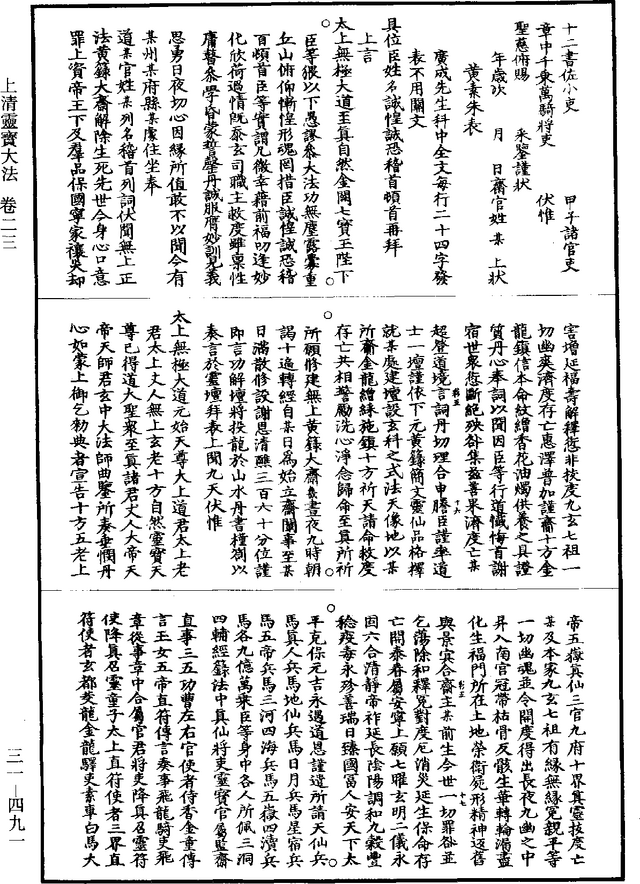 十二書佐小吏　　　甲子諸官吏
章中千乘萬騎將吏　　　伏惟
聖慈俯賜　　　采鑒謹狀
年歲次　月　日齋官姓某上狀
黃素朱表
廣成先生科中全文每行二十四字發
表不用關文
具位臣姓名誠惶誠恐稽首頓首再拜
上言
太上無極大道至真自然金闕七寶玉陛下
臣等猥以下愚謬叅大法功無塵露釁重
丘山俯仰慚惶形魂罔措臣誠惶誠恐稽
首頓首臣等實謂凡微幸藉前福叨逢妙
化欣荷過情既忝玄司職主救度雖稟性
庸瞽叅學昏蒙誓罄丹誠服膺妙訓兄義
思勇日夜切心因緣所值敢不以聞今有
某州某府縣某處住坐奉
道某官姓某列名稽首列詞伏聞無上正
法黃籙大齋解除生死先世今身心口意
罪上資帝王下及羣品保國寧家禳災却
害增延福壽解釋愆非拔度九玄七祖一
切幽爽濟度存亡惠澤普加謹齎十方金
龍鎮信本命紋繒香花油燭供養之具證
質丹心奉詞以聞因臣等行道懺悔首謝
宿世愆慝斷絕殃咎集茲善果濟度亡某
超登道境言詞丹切理合申騰臣謹率道
士一壇謹依下元黃籙簡文靈仙品格擇
就某處建壇設玄科之式法天像地以某
所齎金龍繒綵施鎮十方祈天請命救度
存亡共相警勵洗心淨念歸命至真所祈
所願修建無上黃籙大齋幾晝夜九時朝
謁十遍轉經自某日為始立齋關事至某
日滿散修設謝恩清醮三百六十分位謹
即言功解壇將投龍於山水丹書種刻以
奏言於靈壇拜表上聞九天伏惟
太上無極大道元始天尊太上道君太上老
君太上丈人無上玄老十方自然靈寶天
尊已得道大聖眾至真諸君丈人大帝天
帝天師君玄中大法師曲鑒所奏垂憫丹
心如蒙上御乞勑典者宣告十方五老上
帝五嶽真仙三官九府十界真靈拔度亡
某及本家九玄七祖有緣無緣冤親平等
一切幽魂並令開度得出長夜九幽之中
昇入南宮冠帶枯骨反骸生華轉輪滿盡
化生福門所在土地榮衛屍形精神返舊
與景冥合齋主某前生今世一切罪咎並
乞蕩除和釋冤對度厄消災延生保命存
亡開泰眷屬安寧上願七曜玄明二儀永
固六合清靜帝祚延長陰陽調和九穀豐
稔疫毒永殄善瑞日臻國富人安天下太
平克保元吉永遇道恩謹遣所請天仙兵
馬真人兵馬地仙兵馬日月兵馬星宿兵
馬五帝兵馬三河四海兵馬五嶽四瀆兵
馬各九億萬乘臣等身中各人所佩三洞
四輔經籙法中真仙將吏靈寶官屬監齋
直事三五功曹左右官使者侍香金童傳
言玉女五帝直符傳言奏事飛龍騎吏飛
章從事章中合屬官君將吏降真召靈符
使降真召靈童子太上直符使者三界直
符使者玄都契龍金龍驛吏素車白馬大
上清靈寶大法　卷二三
三一—四九一